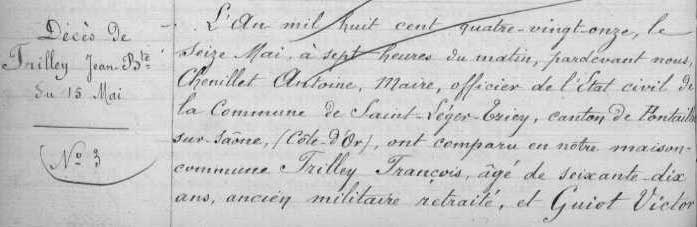 Décès de
Trilley Jean-Bte
du 15 Mai
No 3
L'An mil huit cent quatre-vingt-onze, le
seize Mai, à sept heures du matin, pardevant nous,
Chenillet Antoine, Maire, officier de l'Etat civil de
la Commune de Saint-Léger-Triey, canton de Pontailler
sur-Saône, (Côte-d'Or), ont comparu en notre maison-
commune Trilley François, âgé de seixante-dix
ans, ancien militaire retraité, et Guiot Victor